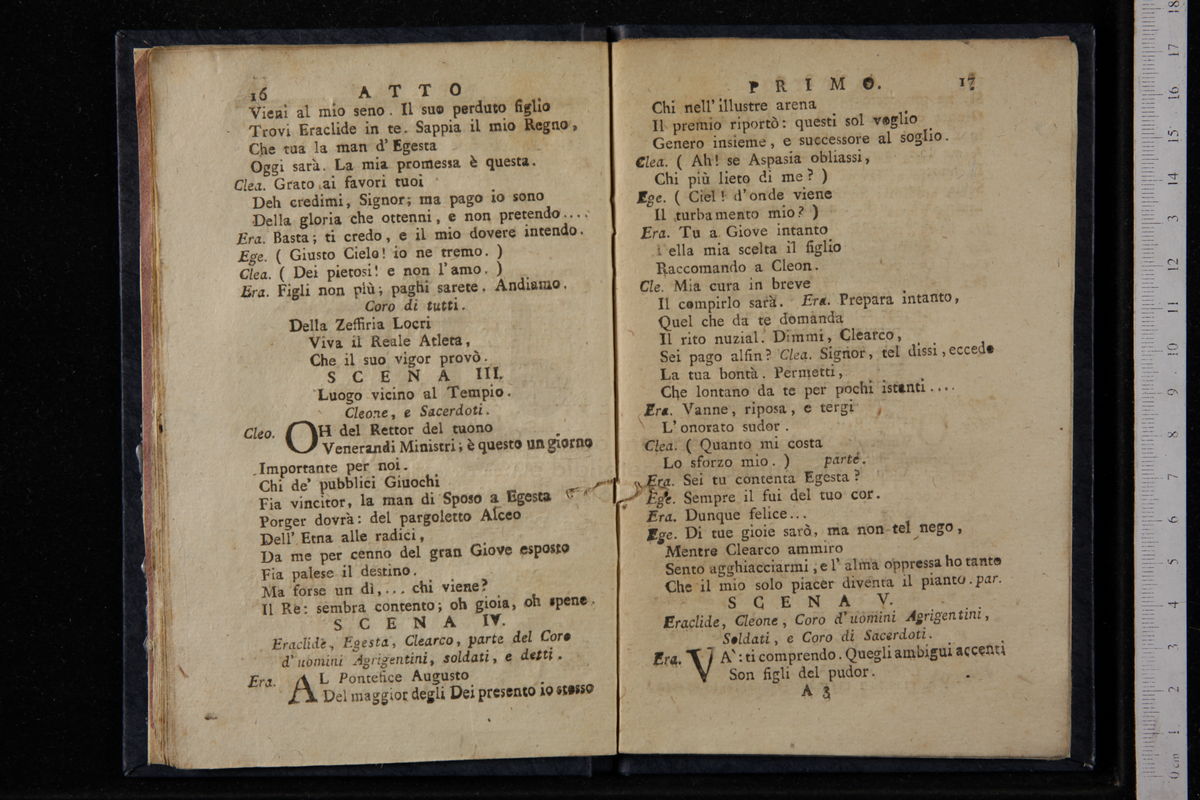 16 ATTO
Vieni al mio seno. Il suo perduto figlio
Trovi Eraclide in te. Sappia il mio Regno,
Che tua la man d'Egesta
Oggi sarà. La mia promessa è questa.
Clea. Grato ai favori tuoi
Deh credimi, Signor; ma pago io sono
Della gloria che ottenni, e non pretendo....
Era. Basta; ti credo, e il mio dovere intendo.
Ege. ( Giusto Cielo! io ne tremo. )
Clea. ( Dei pietosi! e non l'amo. )
Era. Figli non più; paghi sarete. Andiamo.
Coro di tutti.
Della Zeffiria Locri
Viva il Reale Atleta,
Che il suo vigor provò.
SCENA III.
Luogo vicino al Tempio.
Cleone, e Sacerdoti.
Cleo. OH del Rettor del tuono
Venerandi Ministri; è questo un giorno
Importante per noi.
Chi de' pubblici Giuochi
Fia vincitor, la man di Sposo a Egesta
Porger dovrà: del pargoletto Alceo
Dell' Etna alle radici,
Da me per cenno del gran Giove esposto
Fia palese il destino.
Ma forse un dì,... chi viene?
Il Re: sembra contento; oh gioia, oh spene.
SCENA IV.
Eraclide, Egesta, Clearco, parte del Coro
d'uomini Agrigentini, soldati, e detti.
Era. AL Pontefice Augusto
Del maggior degli Dei presento io stesso
PRIMO. 17
Chi nell'illustre arena
Il premio riportò: questi sol voglio
Genero insieme, e successore al soglio.
Clea. ( Ah! se Aspasia obliassi,
Chi più lieto di me? )
Ege. ( Ciel! d'onde viene
Il turbamento mio? )
Era. Tu a Giove intanto
ella mia scelta il figlio
Raccomando a Cleon.
Cle. Mia cura in breve
Il compirlo sarà. Era. Prepara intanto,
Quel che da te domanda
Il rito nuzial. Dimmi, Clearco,
Sei pago alfin? Clea. Signor, tel dissi, eccede
La tua bontà. Permetti,
Che lontano da te per pochi istanti....
Era. Vanne, riposa, e tergi
L'onorato sudor.
Clea. ( Quanto mi costa
Lo sforzo mio. ) parte.
Era. Sei tu contenta Egesta?
Ege. Sempre il fui del tuo cor.
Era. Dunque felice...
Ege. Di tue gioie sarò, ma non tel nego,
Mentre Clearco ammiro
Sento agghiacciarmi, e l'alma oppressa ho tanto
Che il mio solo piacer diventa il pianto. par.
SCENA V.
Eraclide, Cleone, Coro d'uomini Agrigentini,
Soldati, e Coro di Sacerdoti.
Era. VA': ti comprendo. Quegli ambigui accenti
Son figli del pudor.
A 3